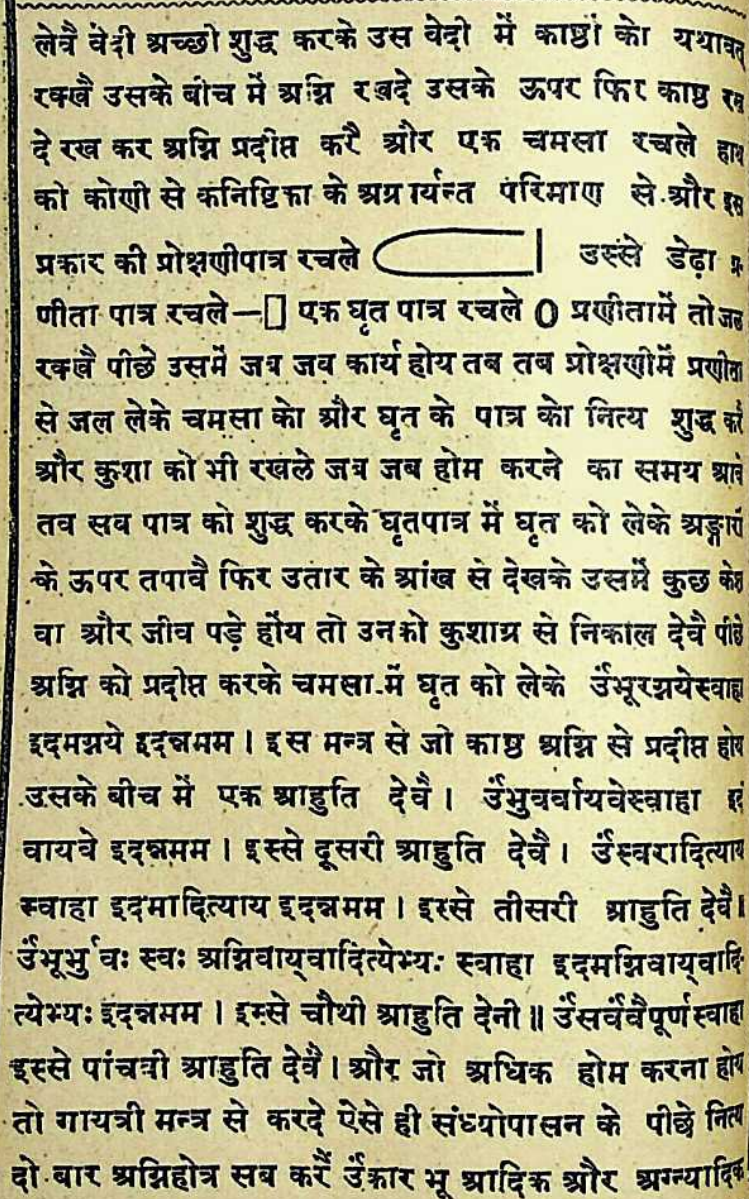 लेवै वेदी अच्छी शुद्ध करके उस वेदी में काष्ठों को यथावत्
रक्खै उसके बीच में अग्नि रखदे उसके ऊपर फिर काष्ठ रख
दे रख कर अग्नि प्रदीप्त करै और एक चमसा रचले हाथ
को कोणी से कनिष्टिका के अग्र पर्यन्त परिमाण से और इस
प्रकार की प्रोक्षणीपात्र रचले उस्से डेढ़ा प्र-
णीता पात्र रचले एक घृत पात्र रचले प्रणीतामें तो जल
रक्खै पीछे उसमें जब जब कार्य होय तब तब प्रोक्षणीमें प्रणीता
से जल लेके चमसा को और घृत के पात्र को नित्य शुद्ध करै
और कुशा को भी रखले जब जब होम करने का समय आवै
तव सव पात्र को शुद्ध करके घृतपात्र में घृत को लेके अङ्गारों
के ऊपर तपावै फिर उतार के आंख से देखके उसमें कुछ केश
वा और जीव पड़े होंय तो उनको कुशाग्र से निकाल देवै पीछे
अग्नि को प्रदीप्त करके चमसा में घृत को लेके उंभूरग्नयेस्वाहा
इदमग्नये इदन्नमम । इस मन्त्र से जो काष्ठ अग्नि से प्रदीप्त होय
उसके बीच में एक आहुति देवै । उंभुवर्वायवेस्वाहा इदं
वायवे इदन्नमम । इस्से दूसरी आहुति देवै । उंस्वरादित्याय
स्वाहा इदमादित्याय इदन्नमम । इस्से तीसरी आहुति देवै ।
उंभूर्भुवः स्वः अग्निवाय्वादित्येभ्यः स्वाहा इदमग्निवाय्वादि-
त्येभ्यः इदन्नमम । इस्से चौथी आहुति देनी ॥ उंसर्वंवैपूर्णस्वाहा
इस्से पांचवी आहुति देवै । और जो अधिक होम करना होय
तो गायत्री मन्त्र से करदे ऐसे ही संध्योपासन के पीछे नित्य
दो बार अग्निहोत्र सब करैं उंकार भू आदिक और अग्न्यादिक